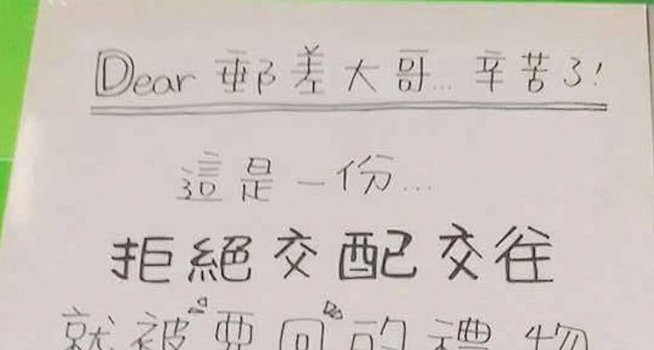 Dear 郵差大哥... 辛苦了!
這是一份...
拒絕交配交往
就被"要回"的禮物